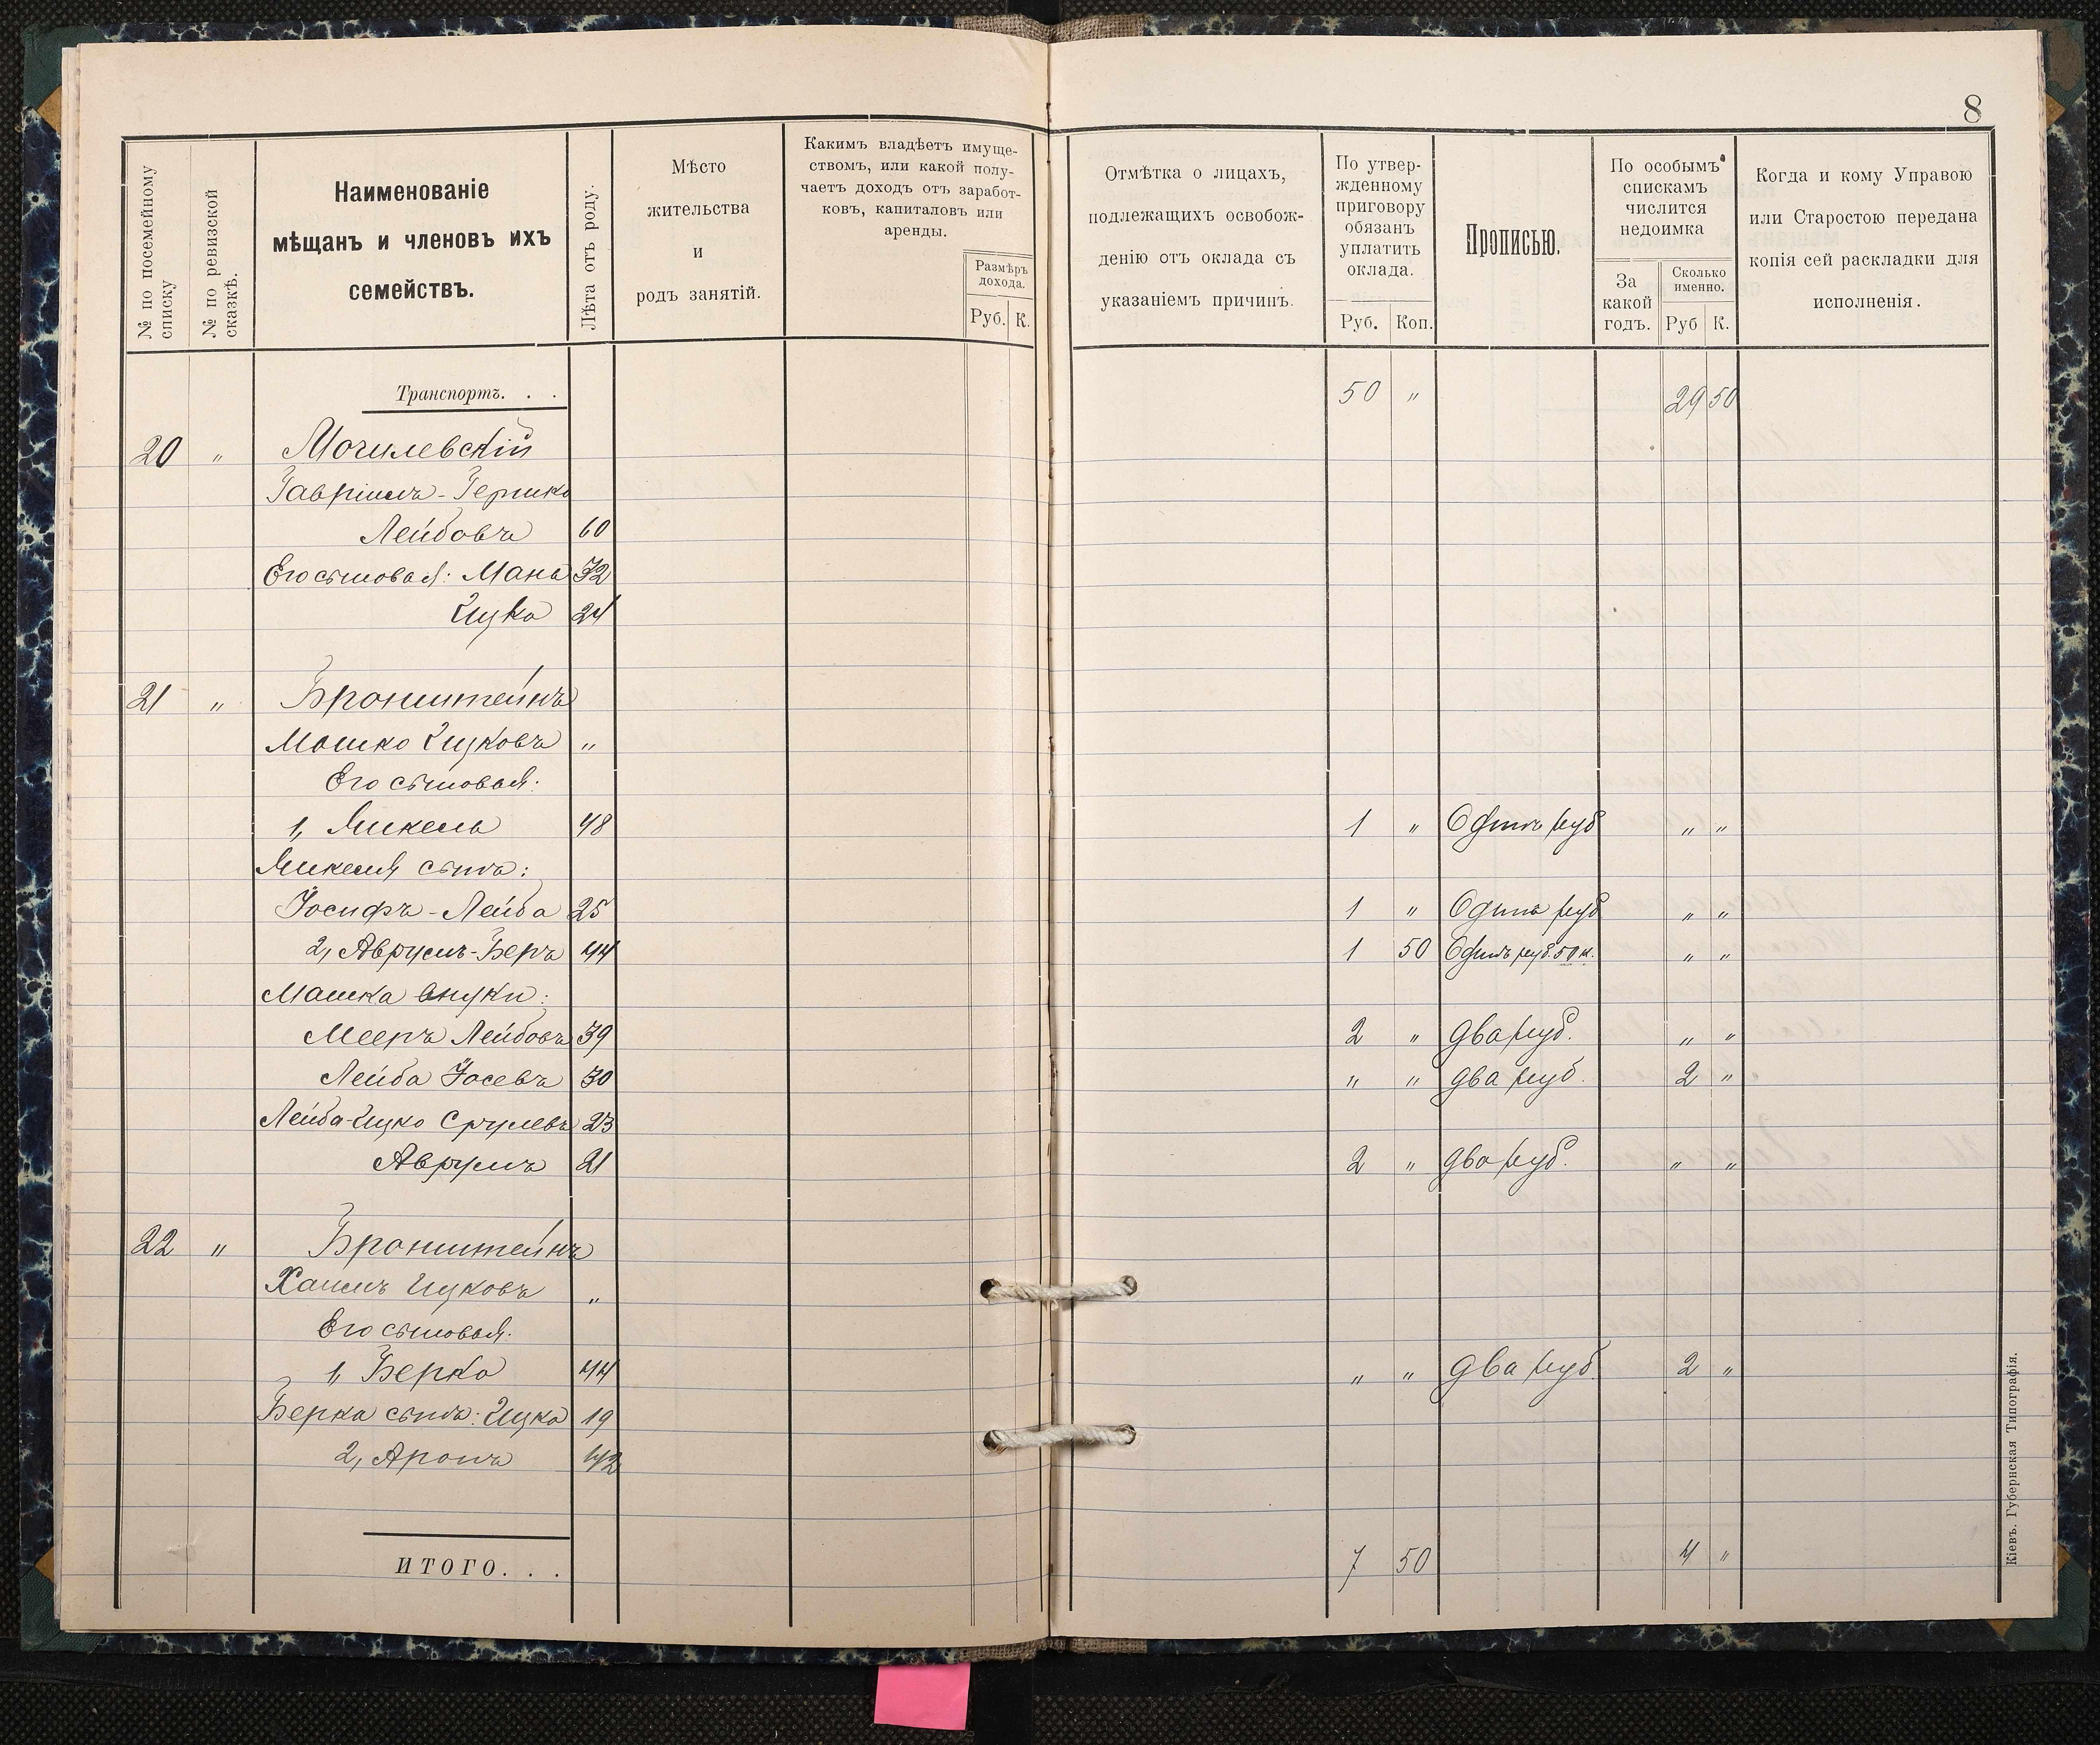 8
№ по посемейному списку
№ по ревизской сказкѣ.
Наименованіе
мѣщанъ и членовъ ихъ
семействъ.
Лѣта отъ роду.
Мѣсто
жительства
и
родъ занятій.
Какимъ владѣетъ имуще-
ствомъ, или какой полу-
чаетъ доходъ отъ заработ-
ковъ, капиталовъ или
аренды.
Размѣръ
дохода.
Руб. К.
Отмѣтка о лицахъ,
подлежащихъ освобож-
денію отъ оклада съ
указаніемъ причинъ.
По утвер-
жденному
приговору
обязанъ
уплатить
оклада.
Руб. Коп.
Прописью.
По особымъ
спискамъ
числится
недоимка
За
какой
годъ.
Сколько
именно.
Руб К.
Когда и кому Управою
или Старостою передана
копія сей раскладки для
исполненія.
Транспортъ. . . 50 " 29 50
20 " Могилевскій
Гавріилъ-Гершко
Лейбовъ 60
Его сыновья: Мана 32
Ицко 24
21 " Бронштейнъ
Мошко Ицковъ "
Его сыновья:
1, Микель 48 1 " Одинъ руб " "
Микеля сынъ:
Іосифъ-Лейба 25 1 " Одинъ руб " "
2, Аврумъ-Беръ 44 1 50 Одинъ руб. 50 к. " "
Мошка внуки:
Мееръ Лейбовъ 39 2 " два руб. " "
Лейба Іосевъ 30 " " два руб. 2 "
Лейба-Ицко Срулевъ 23
Аврумъ 21 2 " два руб. " "
22 " Бронштейнъ
Хаимъ Ицковъ "
Его сыновья.
1, Берко 44 " " два руб. 2 "
Берка сынъ: Ицко 19
2, Аронъ 42
ИТОГО. . . 7 50 4 "
Кіевъ. Губернская Типографія.